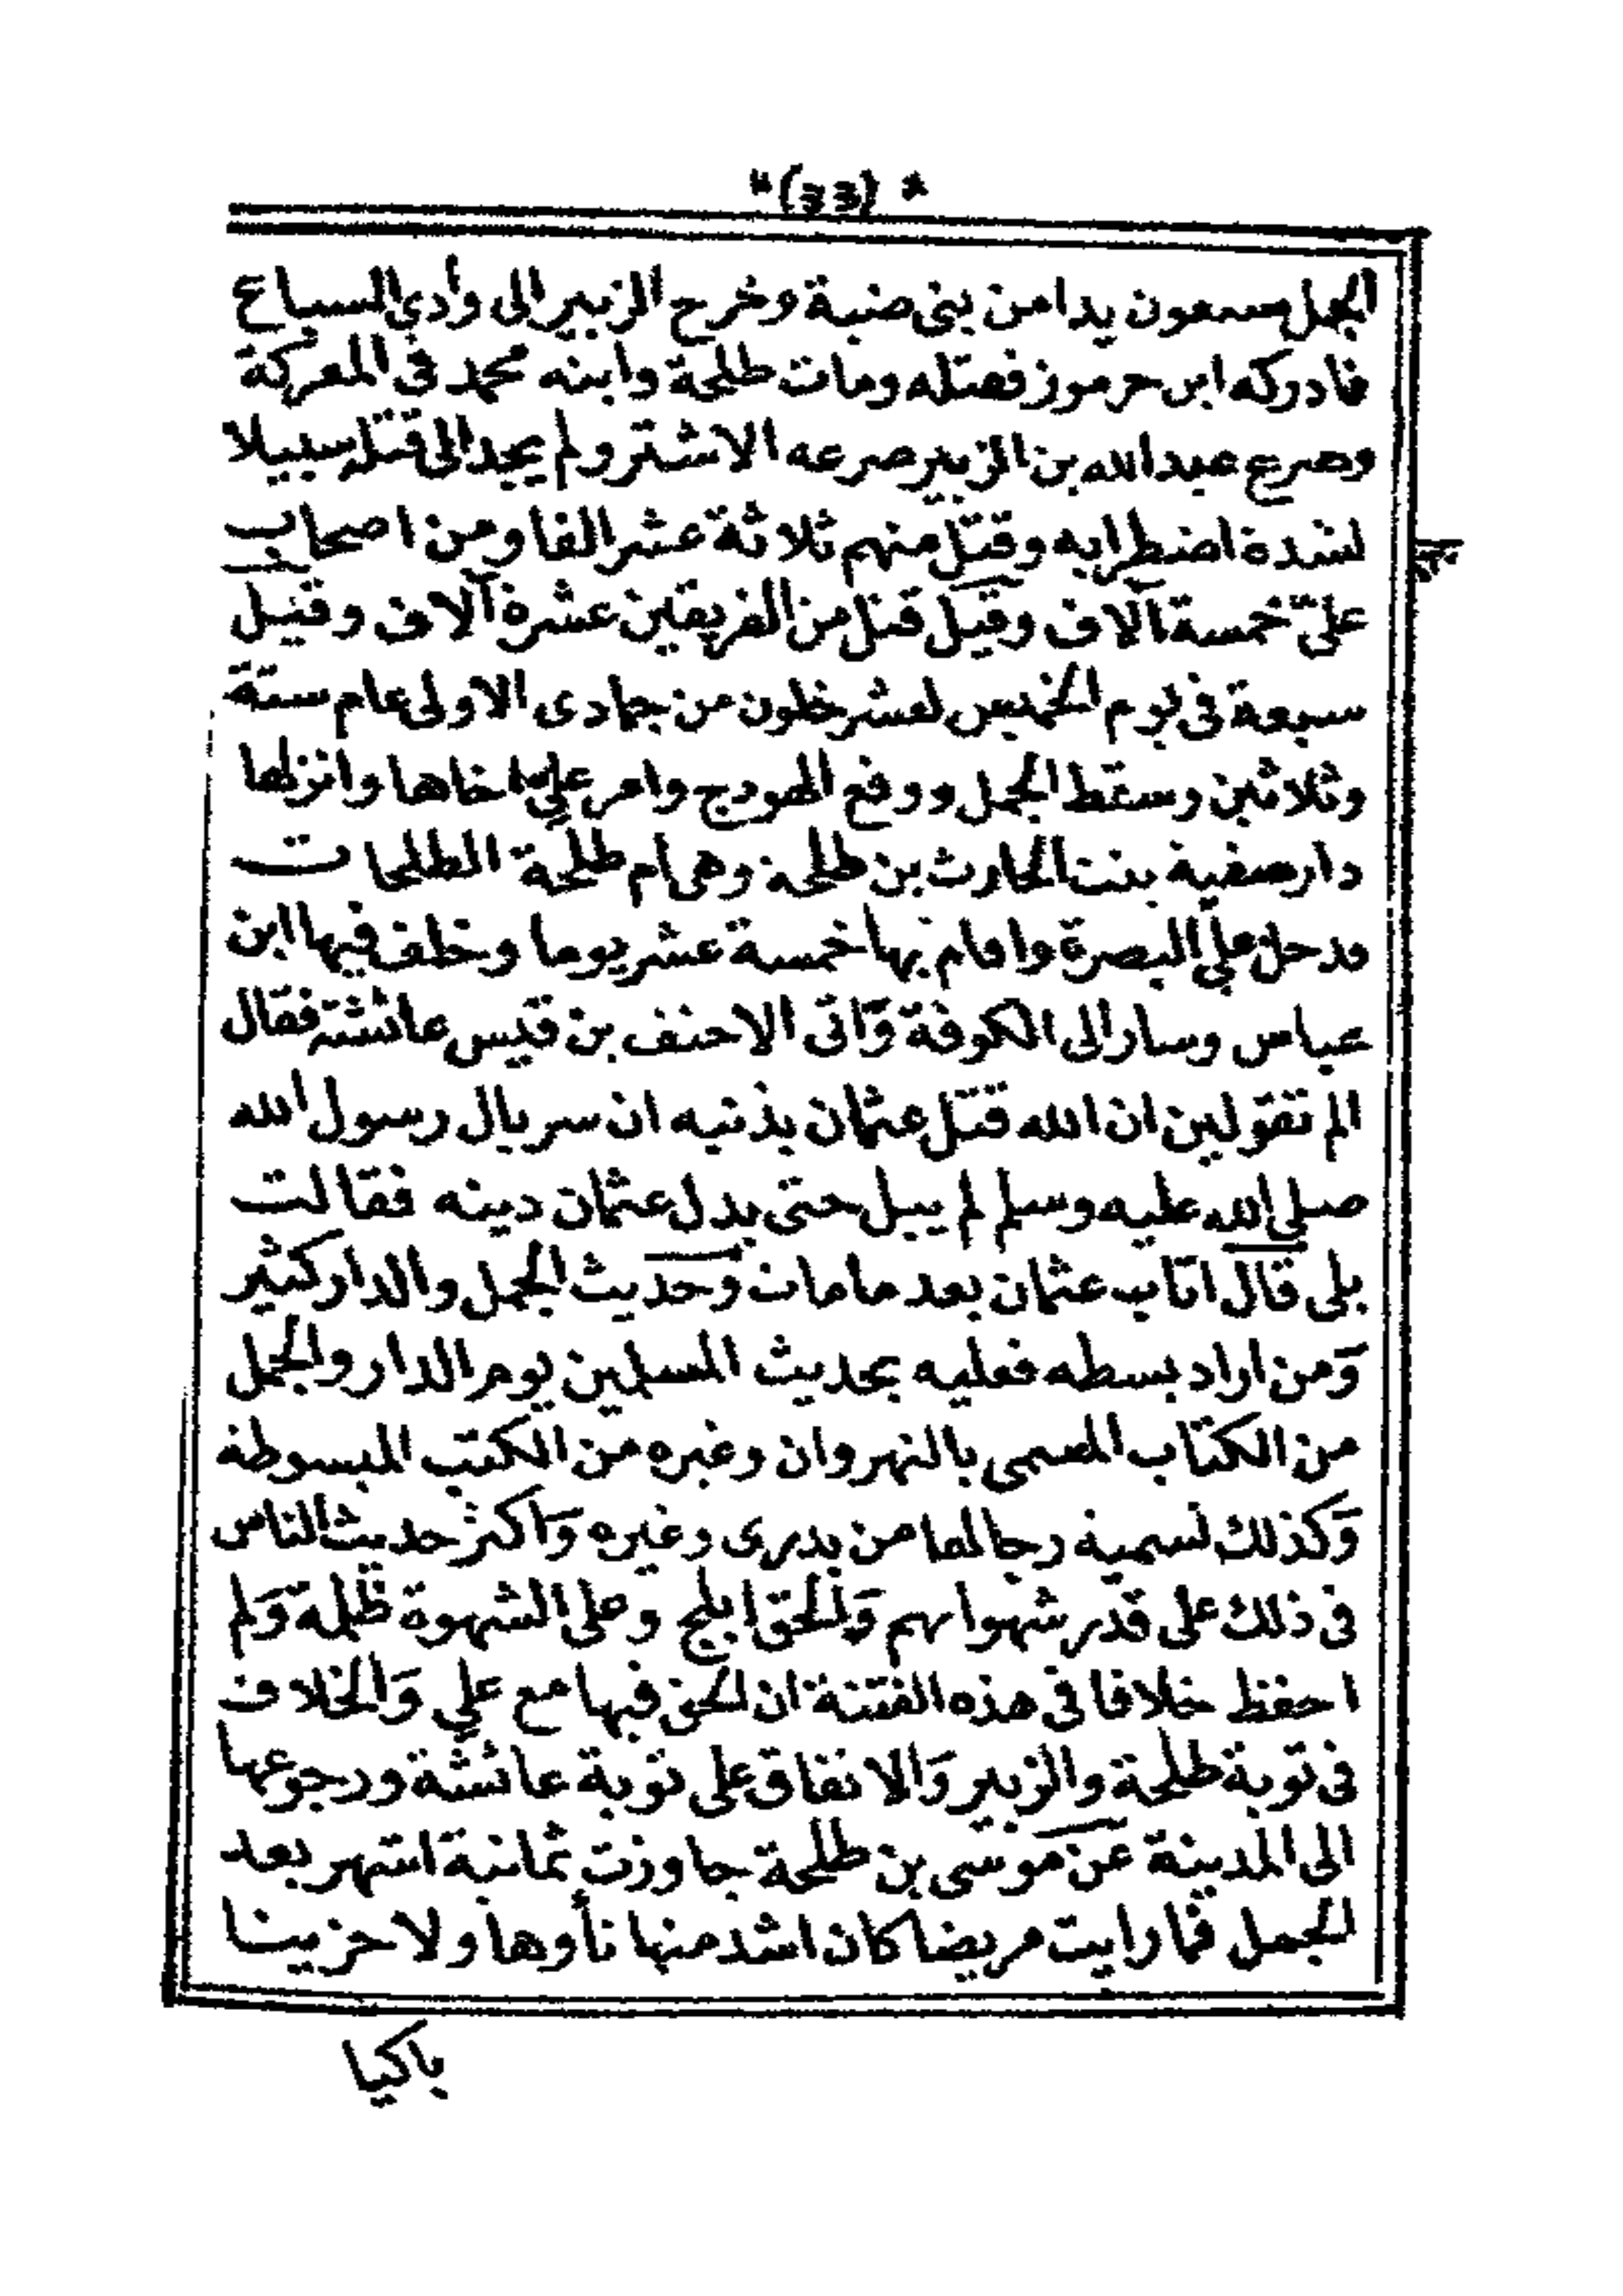 *(33)*
الجمل سبعون يدا من بنى ضبة وخرج الزبير الى وادي السباع
فادركه ابن جرموز فقتله ومات طلحة وابنه محمد فى المعركة
وصرع عبد الله بن الزبير صرعه الاشتر ولم يجد الى قتله سبيلا
لشدة اضطرابه وقتل منهم ثلاثة عشر الفا ومن اصحاب
علىّ خمسة آلاف وقيل قتل من الفريقين عشرة آلاف وقيل
سبعة فى يوم الخميس لعشر خلون من جمادى الاولى عام ستة
وثلاثين وسقط الجمل ووقع الهودج وامر علي اخاها وانزلها
دار صفية بنت الحارث بن طلحة وهى أم طلحة الطلحات
ودخل علي البصرة واقام بها خمسة عشر يوما وخلف فيها ابن
عباس وسار الى الكوفة وَاتى الاحنف بن قيس عائشة فقال
الم تقولين ان الله قتل عثمان بذنبه ان سربال رسول الله
صلى الله عليه وسلم لم يبل حتى بدل عثمان دينه فقالت
بلى قال اتاب عثمان بعد ما مات وَحديث الجمل والدار كثير
وَمن اراد بسطه فعليه بحديث المسلمين يوم الدار والجمل
من الكتاب المسمى بالنهروان وغيره من الكتب المبسوطة
وَكذلك تسمية رجالها من بدرى وغيره وَاكثر حديث الناس
فى ذلك على قدر شهواتهم وَالحق ابلج وعلى الشهوة ظلمة وَلم
احفظ خلافا فى هذه الفتنة ان الحق فيها مع علي وَالخلاف
فى توبة طلحة والزبير وَالاتفاق على توبة عائشة ورجوعها
الى المدينة عن موسى بن طلحة جاوزت ثمانية اشهر بعد
الجمل فما رايت مريضا كان اشد منها تأوها ولا حزينا
باكيا